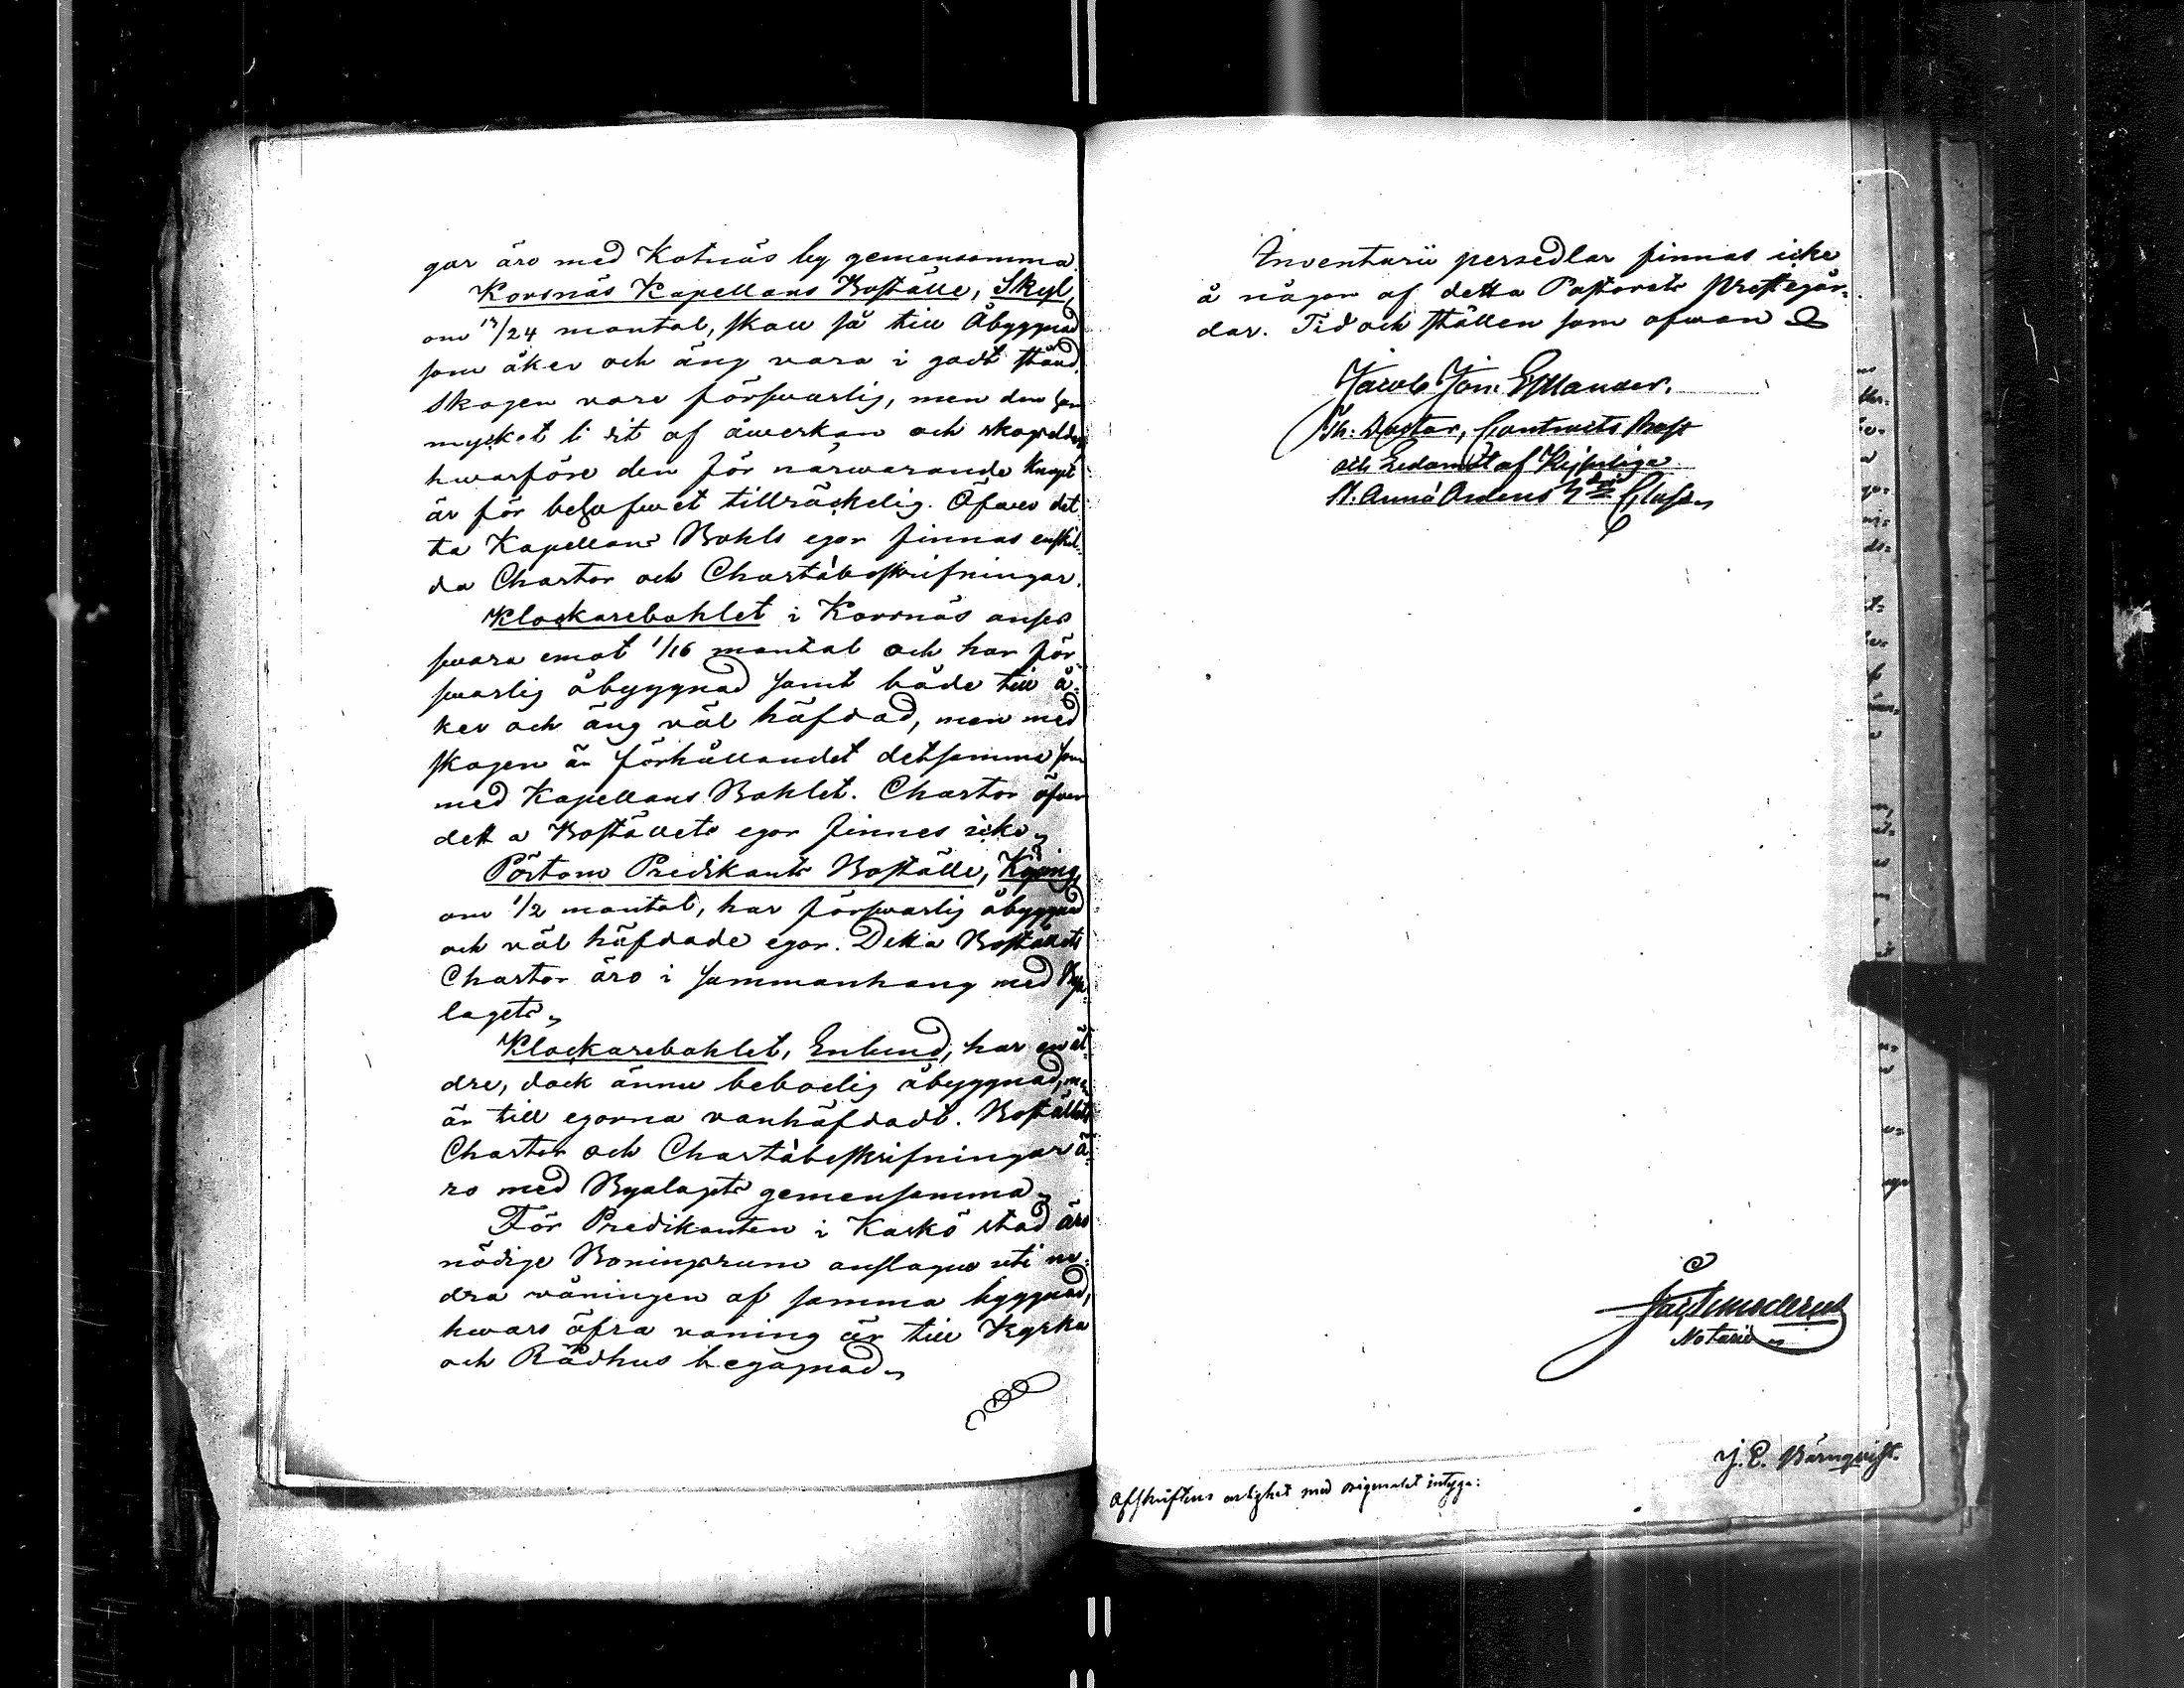 gar äro med Kotnäs by gemensamma.
Korsnäs Kapellans Boställe, Skyl,
om 17/24 mantal, skall så till Åbyggnad
som åker och äng vara i godt stånd.
Skogen vore förswarlig, men den har
mycket lidit af åwerkan och skogseldar
hwarföre den för närwarande knapt
är för behofwet tillräckelig. Öfwer det
ta Kapellans Bohls egor finnas enskil-
da Chartor och Chartæbeskrifningar.
Klockarebohlet i Korsnäs anses
swara emot 1/16 mantal och har för
swarlig åbyggnad samt både till å-
ker och äng väl häfdad, men med
skogen är förhållandet detsamma som
med Kapellans Bohlet. Chartor öfver
detta Boställets egor finnes icke,
Pörtom Predikants Boställe,
om 1/2 mantal, har förswarlig åbyggnad
och väl häfdade egor. Detta Boställets
Chartor äro i sammanhang med Bya-
lagets,
Klockarebohlet, Enlund, har en äl-
dre, dock ännu beboelig åbyggnad, men
är till egorna vanhäfdadt. Boställets
Chartor och Chartæbeskrifningar ä-
ro med Byalagets gemensamma,
För Predikanten i Kaskö stad äro
nödige Boningsrum anslagne uti ne-
dra våningen af samma byggnad,
hwars öfra vaning är till Kyrka
och Rådhus begagnad,
Inventarii persedlar finnas icke
å någon af detta Pastorats Prestegår-
dar. Tid och ställen som ofwan
Jacob Jon. Estlander.
Th: Doctor, Contracts Prost
och Ledamot af Kejserliga
St. Annæ Ordens 3dje Classe,
Notarie
J. E. Bärnqvist.
Afskriftens  med originalet intyga: